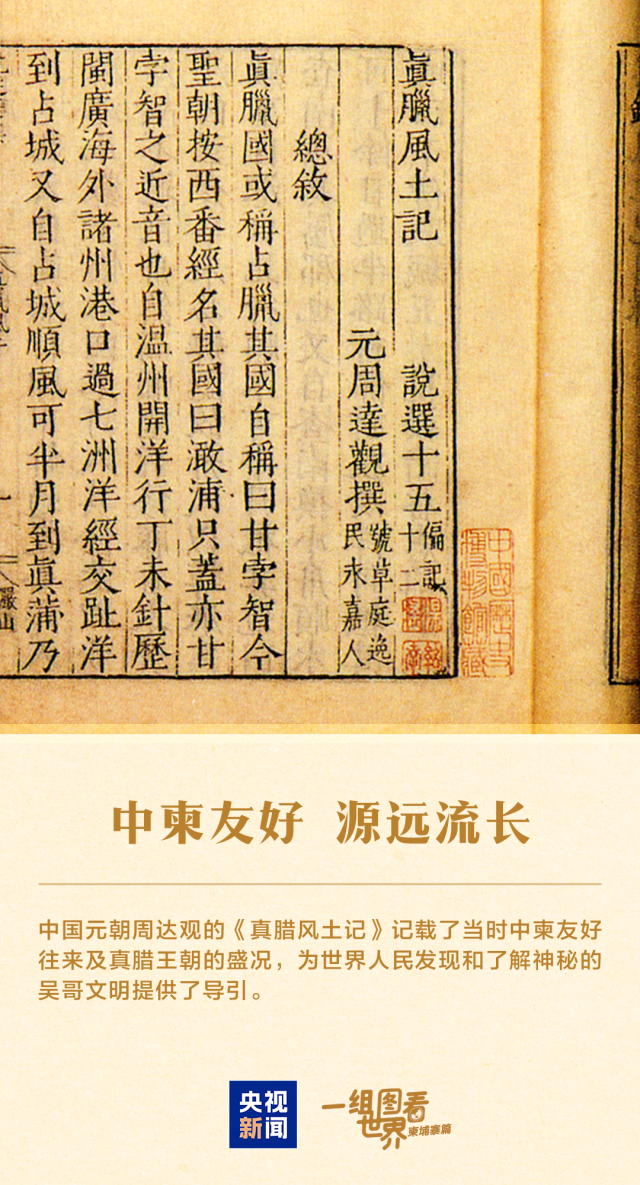 眞臘風土記 說選十五 偏記十二
元周達觀撰 號草庭逸民永嘉人
總敘
眞臘國或稱占臘其國自稱曰甘孛智今
聖朝按西番經名其國曰澉浦只蓋亦甘
孛智之近音也自溫州開洋行丁未針歷
閩廣海外諸州港口過七洲洋經交趾洋
到占城又自占城順風可半月到眞蒲乃
中國歷史
博物館藏
中柬友好 源远流长
中国元朝周达观的《真腊风土记》记载了当时中柬友好
往来及真腊王朝的盛况，为世界人民发现和了解神秘的
吴哥文明提供了导引。
央视
新闻
一组图看
世界
柬埔寨篇